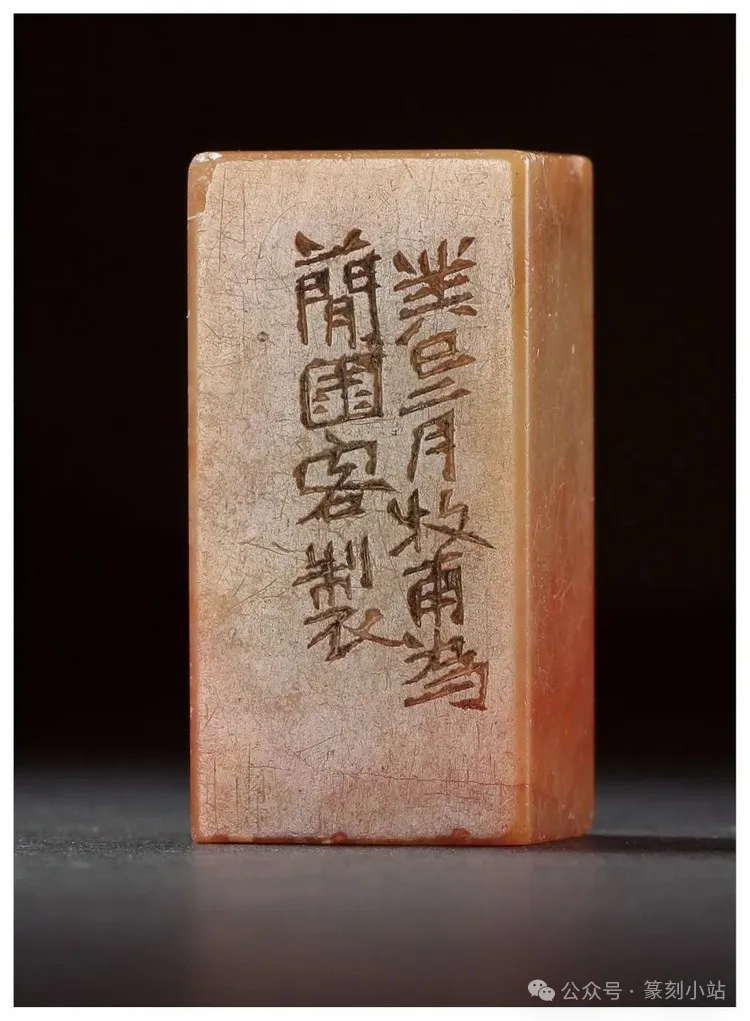 癸巳二月牧甫為
客製
公众号 · 篆刻小站